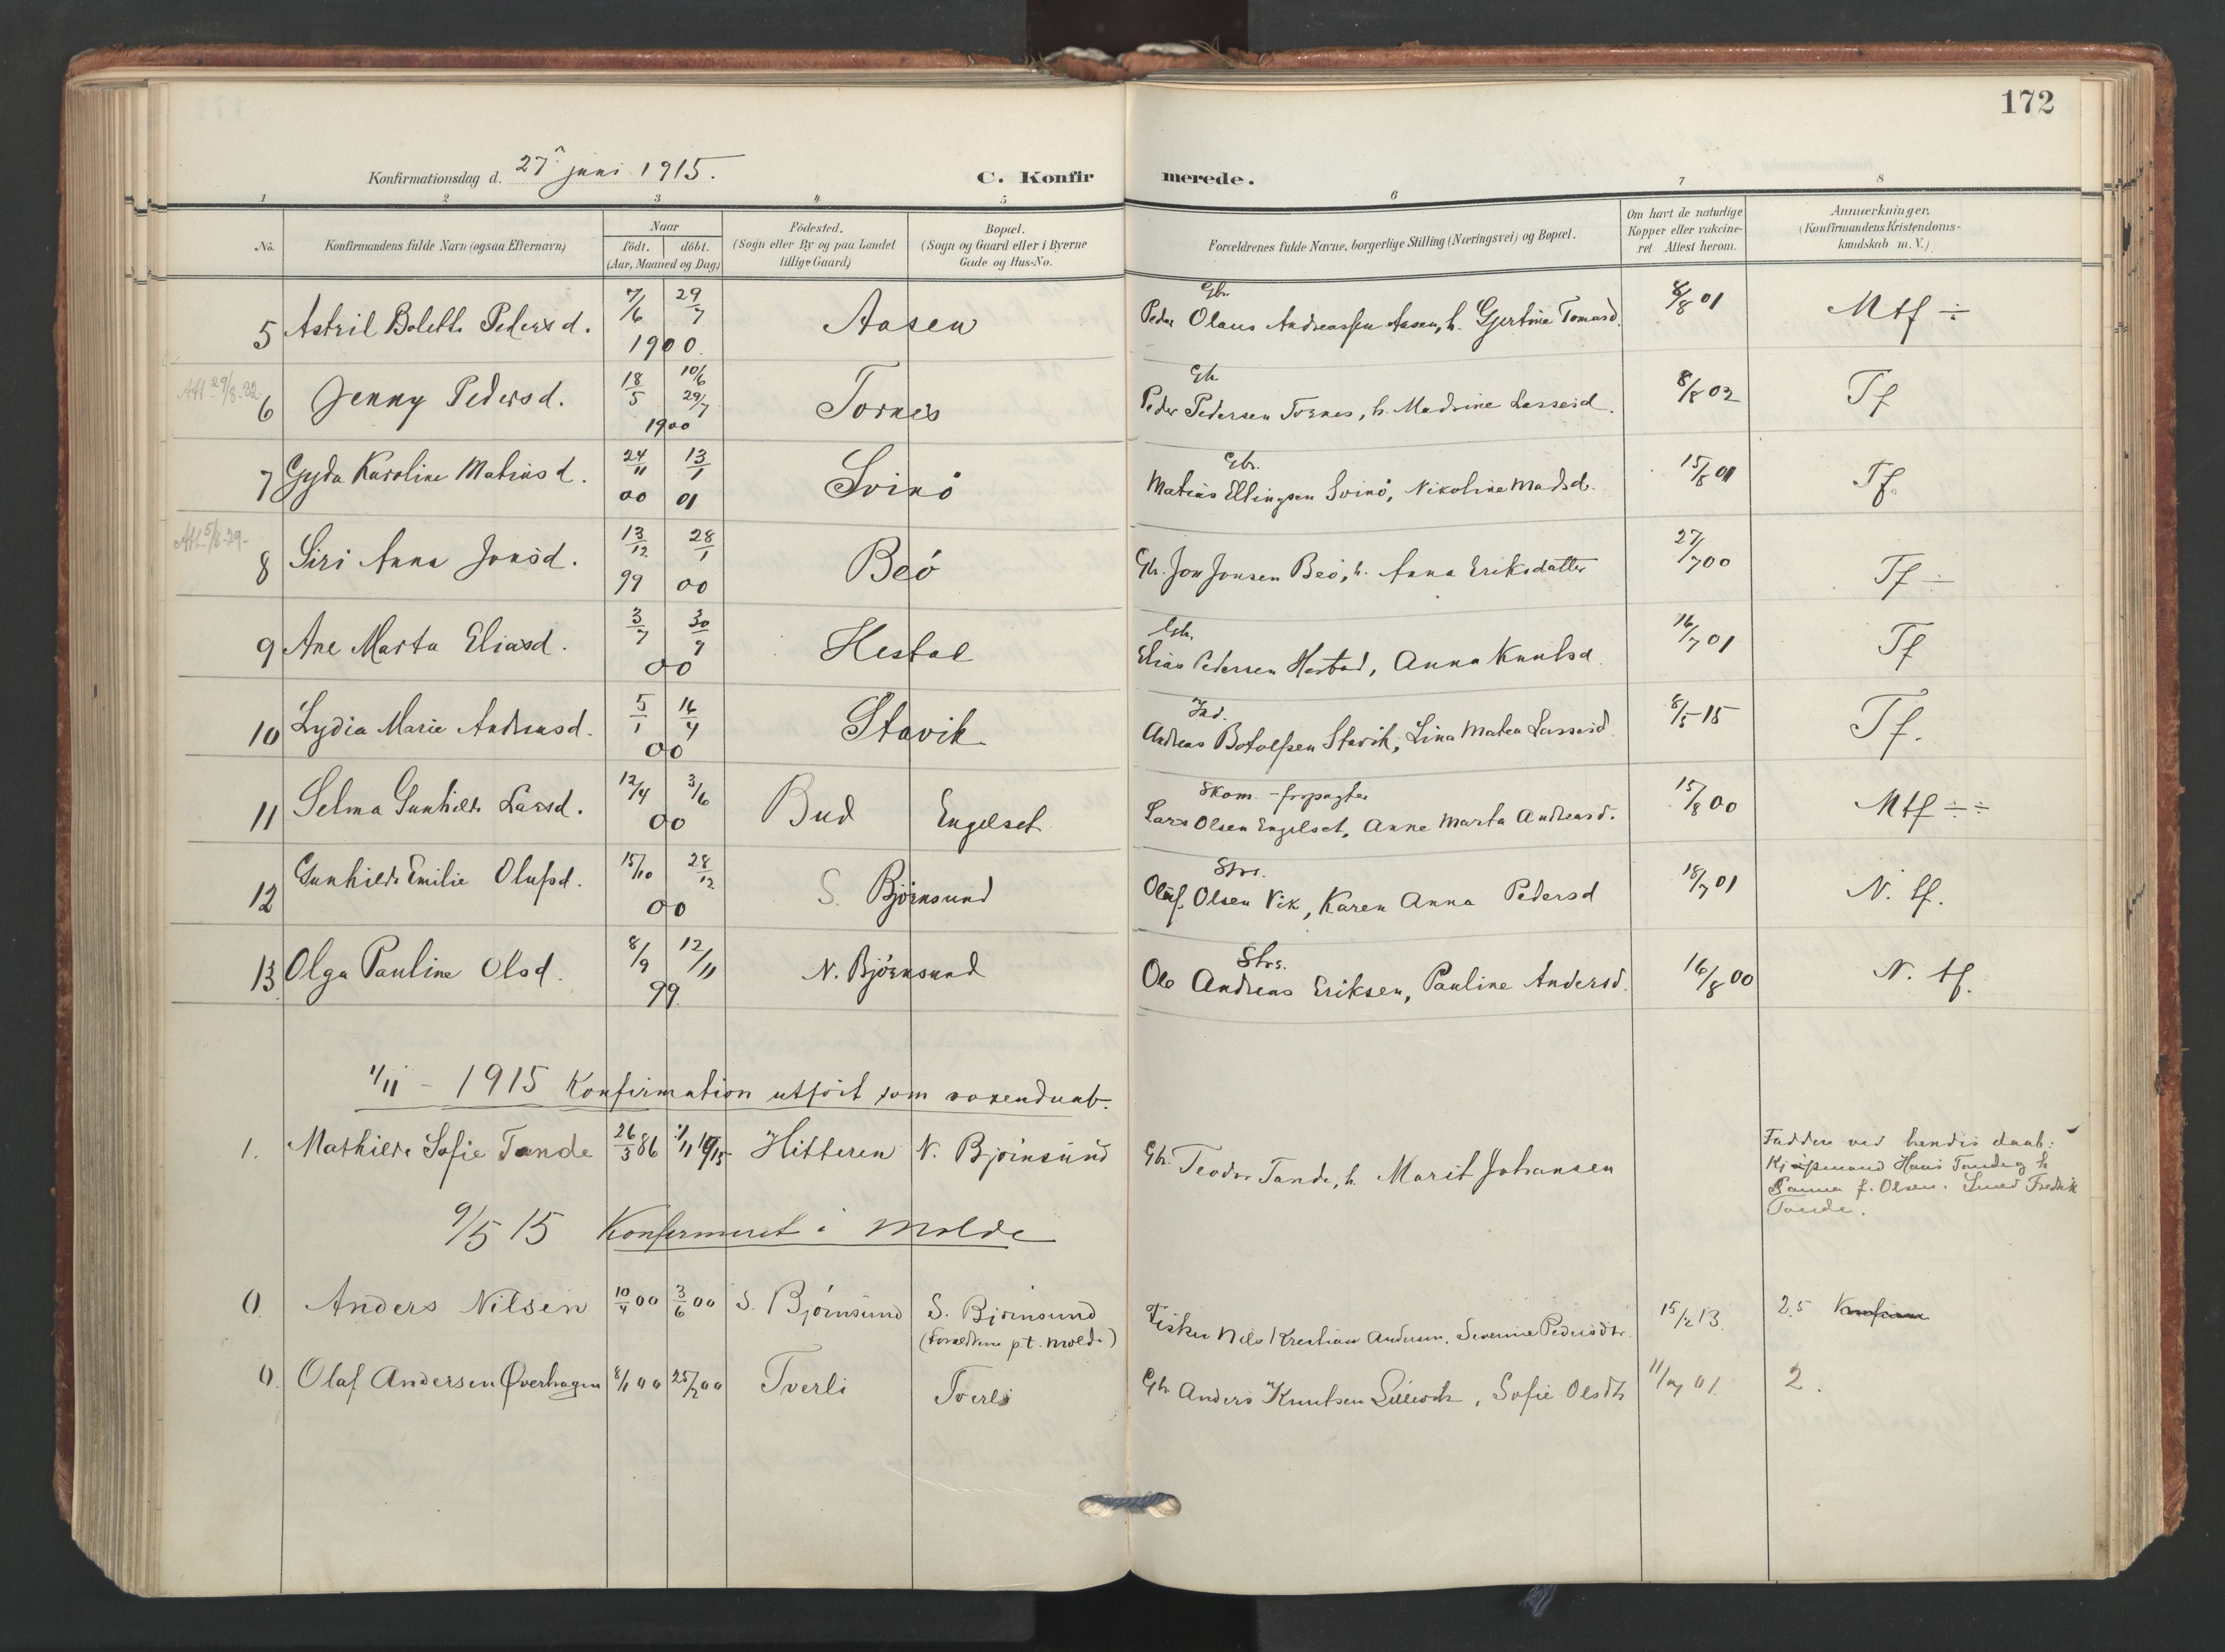 172
Konfirmationsdag d. 27 juni 1915.
C. Konfirmerede.
1 2 3 4 5 6 7 8
No.
Konfirmandens fulde Navn (ogsaa Efternavn)
Naar
født. døbt.
(Aar, Maaned og Dag)
Födested.
(Sogn eller By og paa Landet
tillige Gaard)
Bopæl.
(Sogn og Gaard eller i Byerne
Gade og Hus-No.
Forældrenes fulde Navne, borgerlige Stilling (Næringsvei) og Bopæl.
Om havt de naturlige
Kopper eller vakcine-
ret Attest herom.
Anmærkninger,
(Konfirmandens Kristendoms-
kundskab m. V.)
Gbr.
5 Astril Bolette Pedersd. 7/6 29/7 1900. Aasen Peder Olaus Andreassen Aasen, h. Gjertine Tomasd. 8/8 01 Mtf ÷
Att. 29/8.22
Gbr
6 Jenny Pedersd. 18/5 10/6 29/7 1900 Tornes Peder Pedersen Tornes, h. Madsine Lassesd. 8/8 02 Tf
Gbr.
7 Gyda Karoline Matiasd. 24/11 00 13/1 01 Svinö Matias Ellingsen Svinö, Nikoline Madsd. 15/8 01 Tf.
Att. 5/8.29-
8 Siri Anna Jonsd. 13/12 99 28/1 00 Beö Gbr. Jon Jonsen Beö, h. Anna Eriksdatter 27/7 00 Tf ÷
Gbr.
9 Ane Marta Eliasd. 3/7 30/9 00 Hestad Elias Pedersen Hestad, Anna Knutsd. 16/7 01 Tf
Ind.
10 Lydia Marie Andreasd. 5/1 16/4 00 Stavik Andreas Botolfsen Stavik, Lina Matea Lassesd. 8/5-15 Tf.
Skom. - forpagter
11 Selma Gunhilde Larsd. 12/4 3/6 00 Bud Engelset Lars Olsen Engelset, Anne Marta Andreasd. 15/8 00 Mtf ÷÷
Strs.
12 Gunhilde Emilie Olufsd. 15/10 28/12 00 S. Björnsund Oluf Olsen Vik, Karen Anna Pedersd 18/7 01 N. tf.
Strs.
13 Olga Pauline Olsd. 8/9 12/11 99. N. Björnsund Ole Andreas Eriksen, Pauline Andersd. 16/8 00 N. tf.
1/11 - 1915 Konfirmation utført som voxendaab.
1. Mathilde Sofie Tande 26/3 86 1/11 1915 Hitteren N. Björnsund Gbr. Teodor Tande, h. Marit Johansen
Faddere ved hendes daab:
Kjøpmand Hans Tande og h
Sanna f. Olsen. Smed Fredrik
Tande.
9/5 15 Konfirmeret i Molde
0. Anders Nilsen 10/4 00 3/6 00 S. Björnsund S. Björnsund Fisker Nils Kristian Andersen, Severine Pedersdtr. 15/2 13. 2.5
(Forældrene p.t. Molde)
0. Olaf Andersen Øverhagen 8/1 00 25/2 00 Tverli Tverli Gbr Anders Knutsen , Sofie Olsdtr 01. 2.